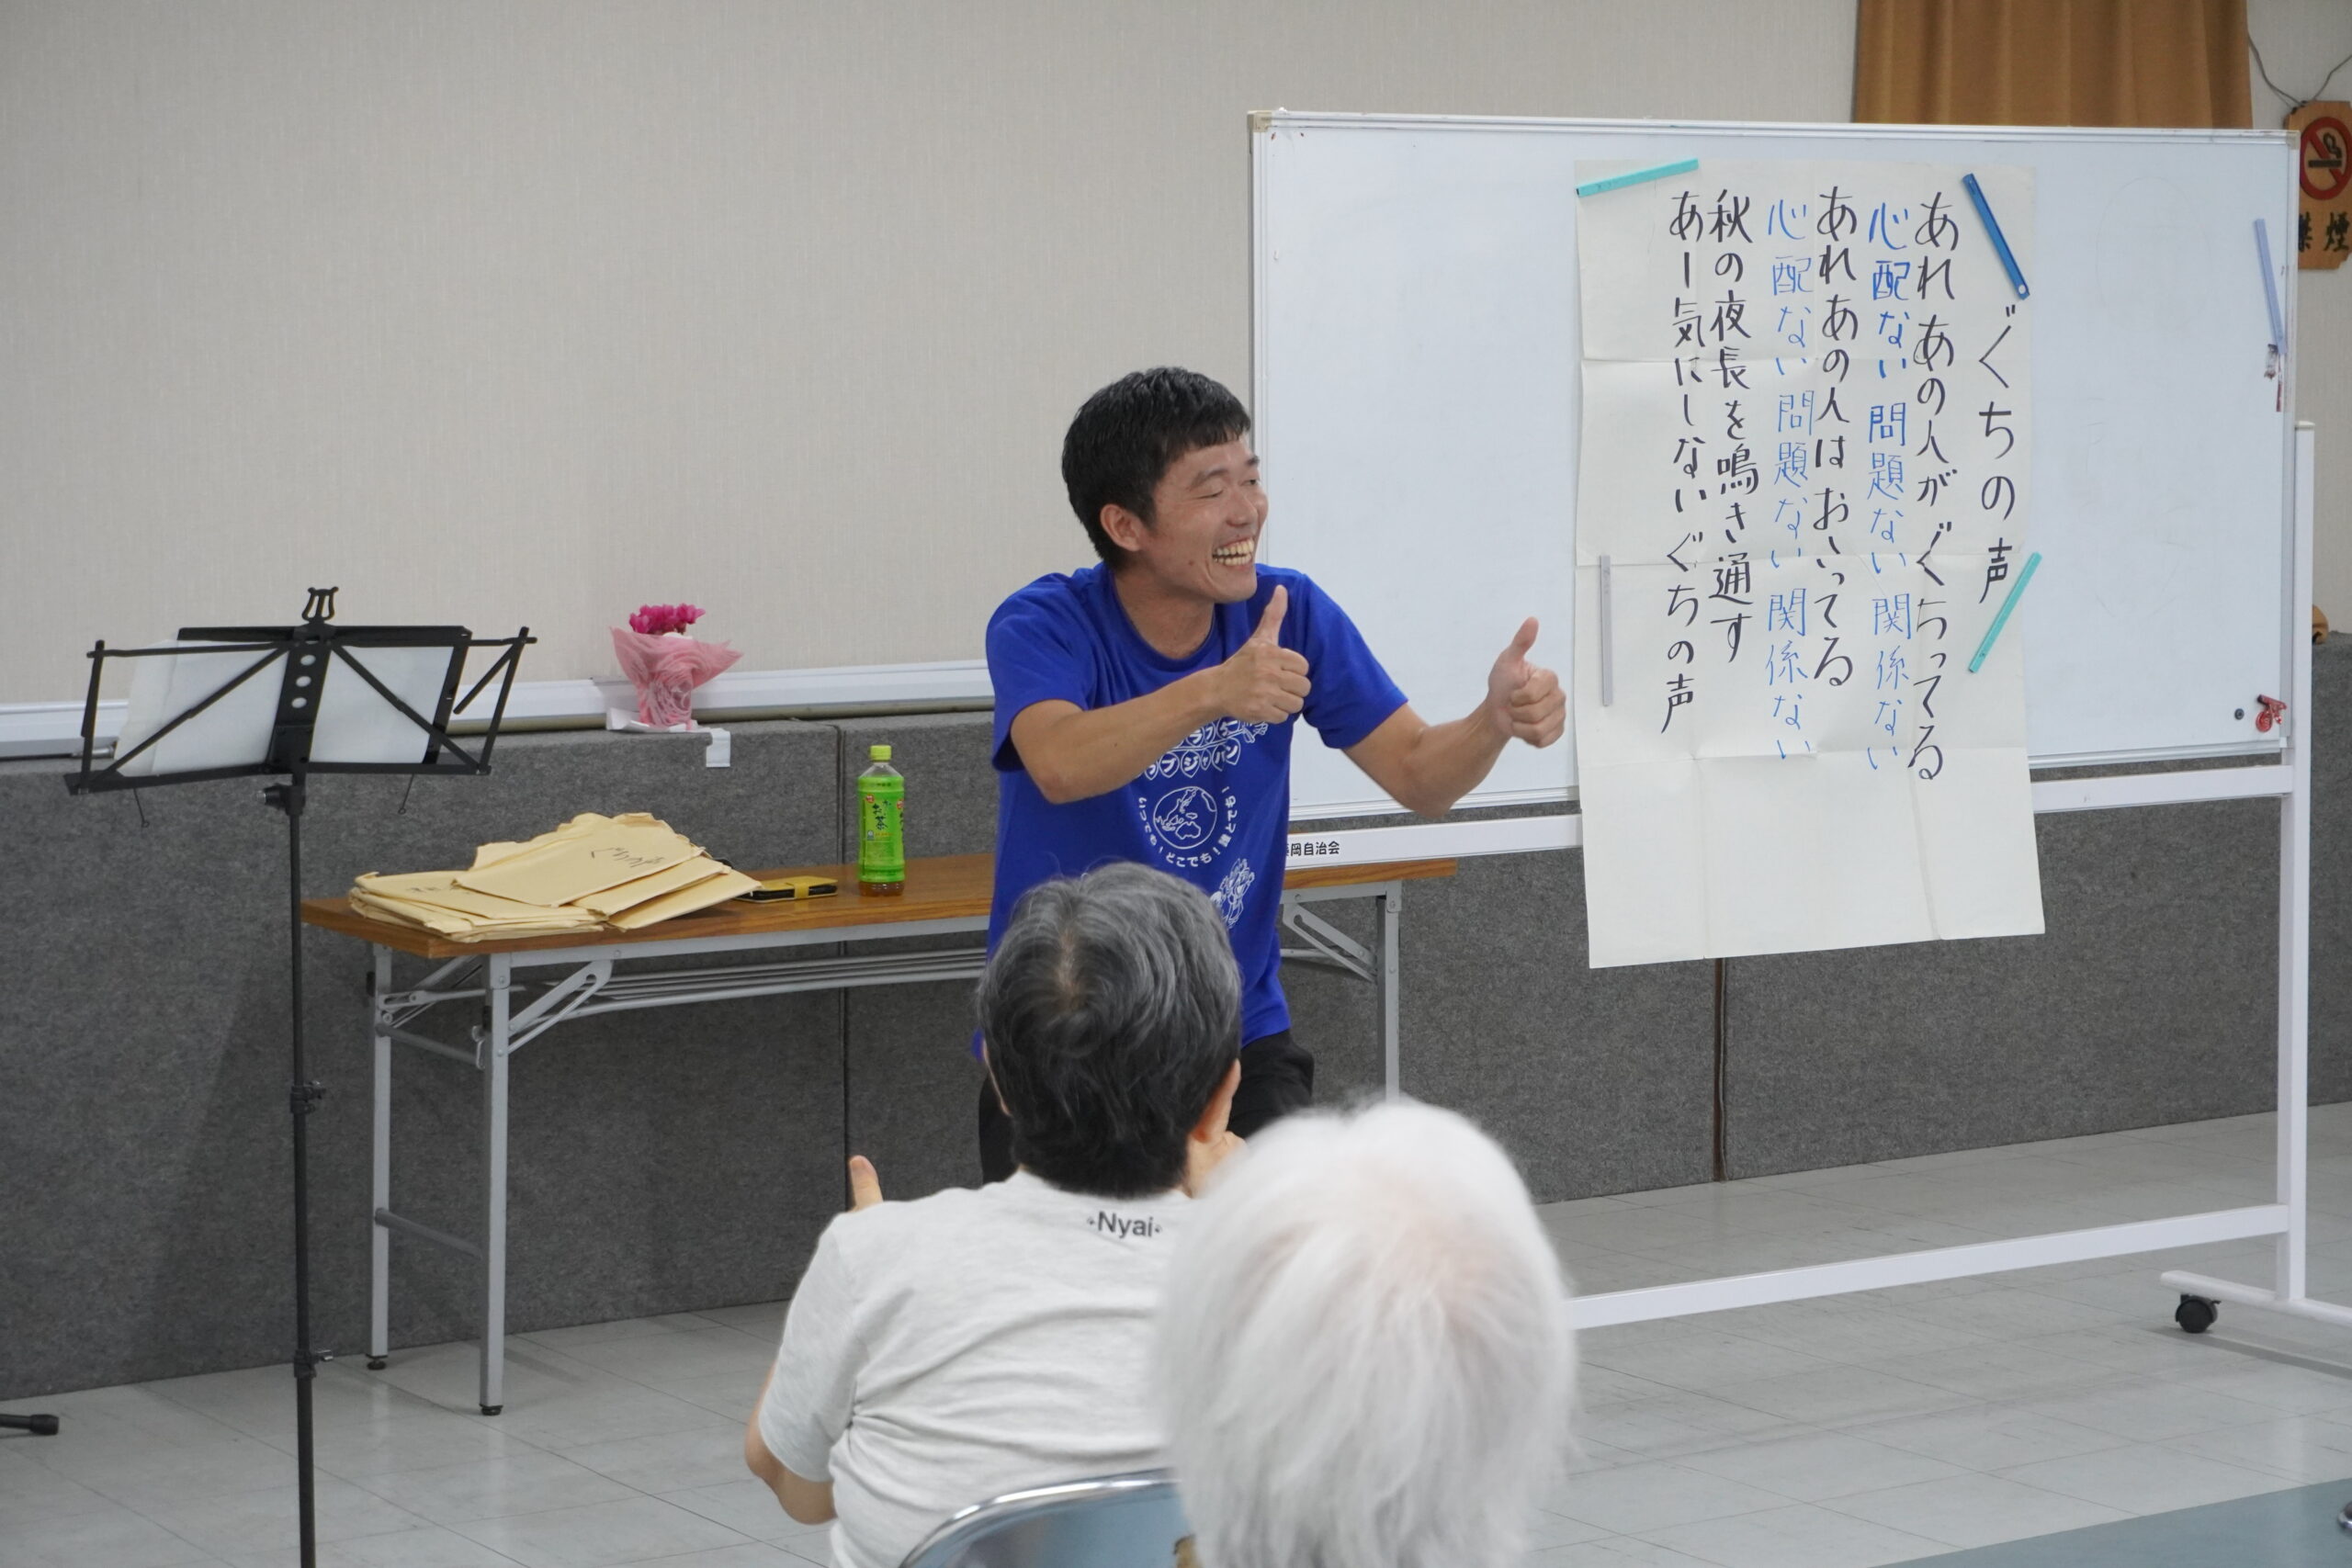 ぐちの声
あれあの人がぐちってる
心配ない 問題ない 関係ない
あれあの人はおいってる
心配ない 問題ない 関係ない
秋の夜長を鳴き通す
あー気にしないぐちの声
禁煙
岡自治会
ラブジャパン
どこでも！誰とでも！
·Nyai·